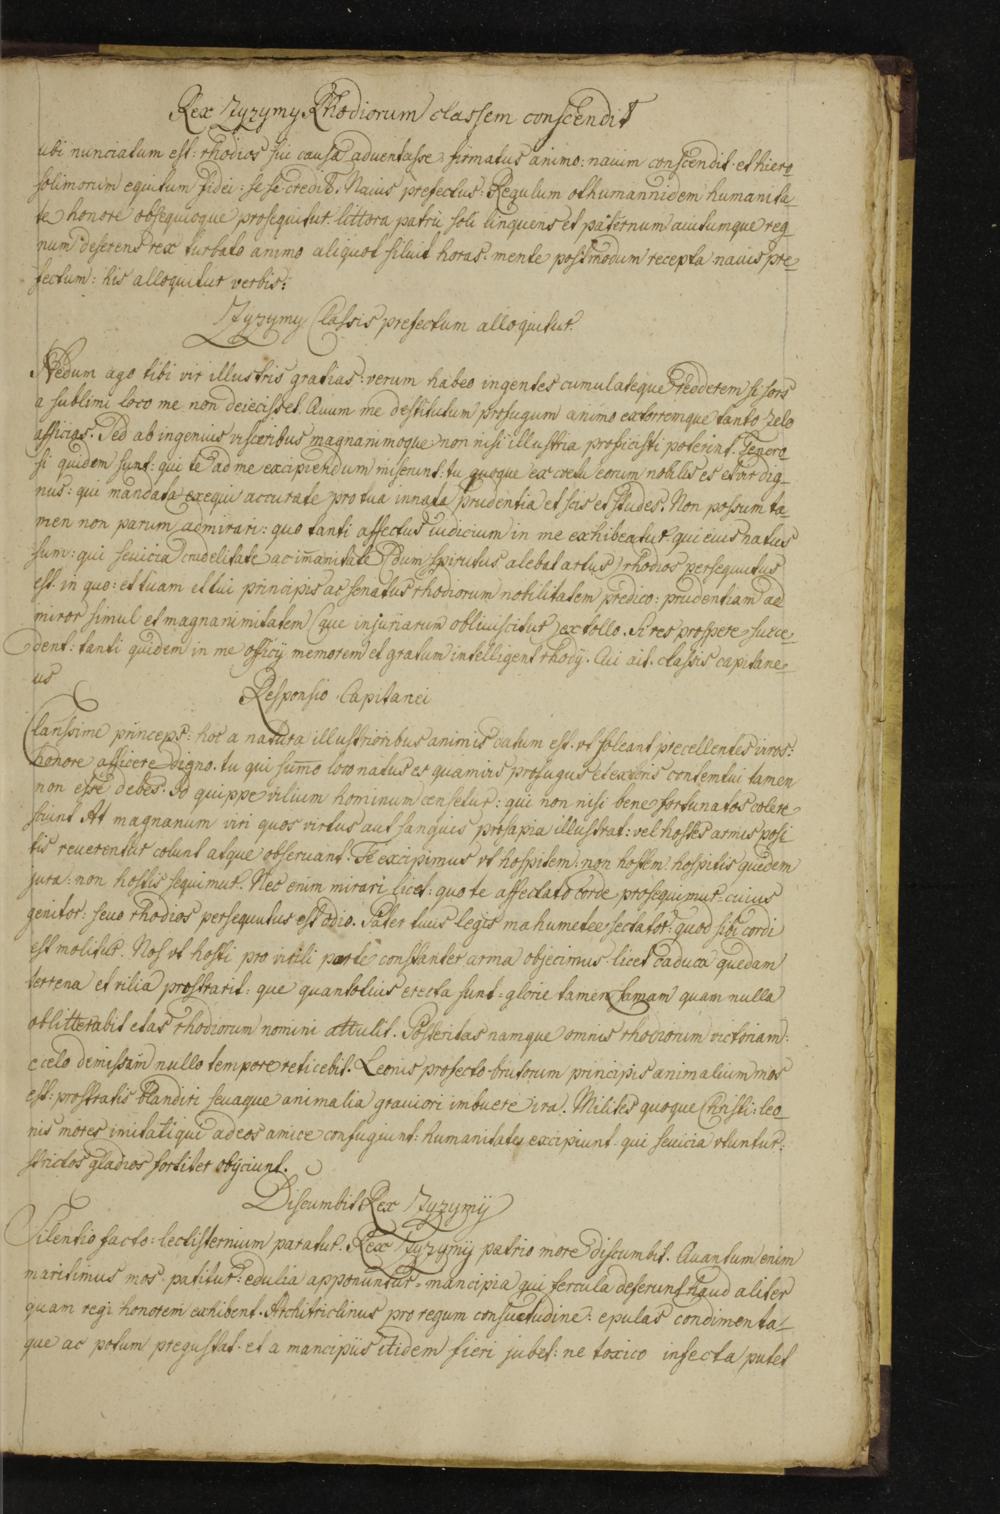 Rex Zyzymy Rhodiorum classem conscendit
ubi nunciatum est: rhodios sui causa aduentasse: firmatus animo: nauim conscendit. et hiero
solimorum equitum fidei: se se credit. Nauis prefectus: Regulum othumannidem humanita-
te honore obsequioque prosequitur. littora patrii soli linquens et paternum auitumque reg-
num deserens rex turbato animo aliquot siluit horas. mente postmodum recepta nauis pre-
fectum: his alloquitur verbis:
Zyzymy Classis prefectum alloquitur.
Nedum ago tibi vir illustris gratias: verum habeo ingentes cumulateque redderem si sors
a sublimi loco me non deiecisset. Quum me destitutum profugum animo extorremque tanto zelo
afficias. Sed ab ingenius visceribus magnanimoque non nisi illustria proficisci poterint. Genero
si quidem sunt: qui te ad me excipiendum miserunt: tu quoque ex cretu eorum nobilis es et vir dig-
nus: qui mandata exequi accurate pro tua innata prudentia et scis et studes. Non possum ta-
men non parum admirari: quo tanti affectus iudicium in me exhibeatur. qui eius natus
sum: qui seuicia crudelitate ac imanitate (dum spirutus alebat artus) rhodios persequutus
est. in quo: et tuam et tui principis ac senatus rhodiorum nobilitatem predico: prudentiam ad
miror simul et magnanimitatem (que injuriarum obliuiscitur) extollo. Si res prospere succe-
dent: tanti quidem in me officij memorem et gratum intelligent rhodij. Cui ait. classis capitane-
us
Responsio Capitanei
Clarissime princeps: hoc a natura illustrioribus animis datum est. vt soleant precellentes viros:
honore afficere digno. tu qui sumo loco natus es quamuis profugus et extoris contemtui tamen
non esse debes. Id quippe vilium hominum censetur: qui non nisi bene fortunatos colere
sciunt At magnanum viri quos virtus aut sanguis prosapia illustrat: vel hostes armis posi
tis reuerentur colunt atque obseruant. Te excipimus vt hospitem: non hostem: hospitis quedem
jura: non hostis sequimur. Nec enim mirari licet: quo te affectato corde prosequimur cuius
genitor. seuo rhodios persequutus est odio. Pater tuus legis mahumetee sectator: quod sibi cordi
est molitur. Nos vt hosti pro virili parte constanter arma objecimus. licet caduca quedam
terrena et vilia prostrarit: que quantotius erecta sunt: glorie tamen famam quam nulla
oblitterabit etas rhodiorum nomini attulit. Posteritas namque omnis rhodiorum victoriam:
e celo demissam nullo tempore reticebit. Leonis profecto brutorum principis animalium mos
est: prostratis blandiri seuaque animalia grauiori imbuere ira. Milites quoque Christi: leo-
nis mores imitati qui ad eos amice confugiunt: humanitate excipiunt qui seuicia vtuntur.
strictos gladios fortiter obijciunt.
Discumbit Rex Zyzymij
Silentio facto: lectisternium paratur. Rex Zyzymij patrio more discumbit. Quantum enim
maritimus mos patitur: edulia apponuntur. mancipia qui fercula deserunt haud aliter
quam regi honorem exhibent. Architriclinus pro regum consuetudine: epulas condimenta-
que ac potum pregustat. et a mancipiis itidem fieri jubet: ne toxico infecta putet